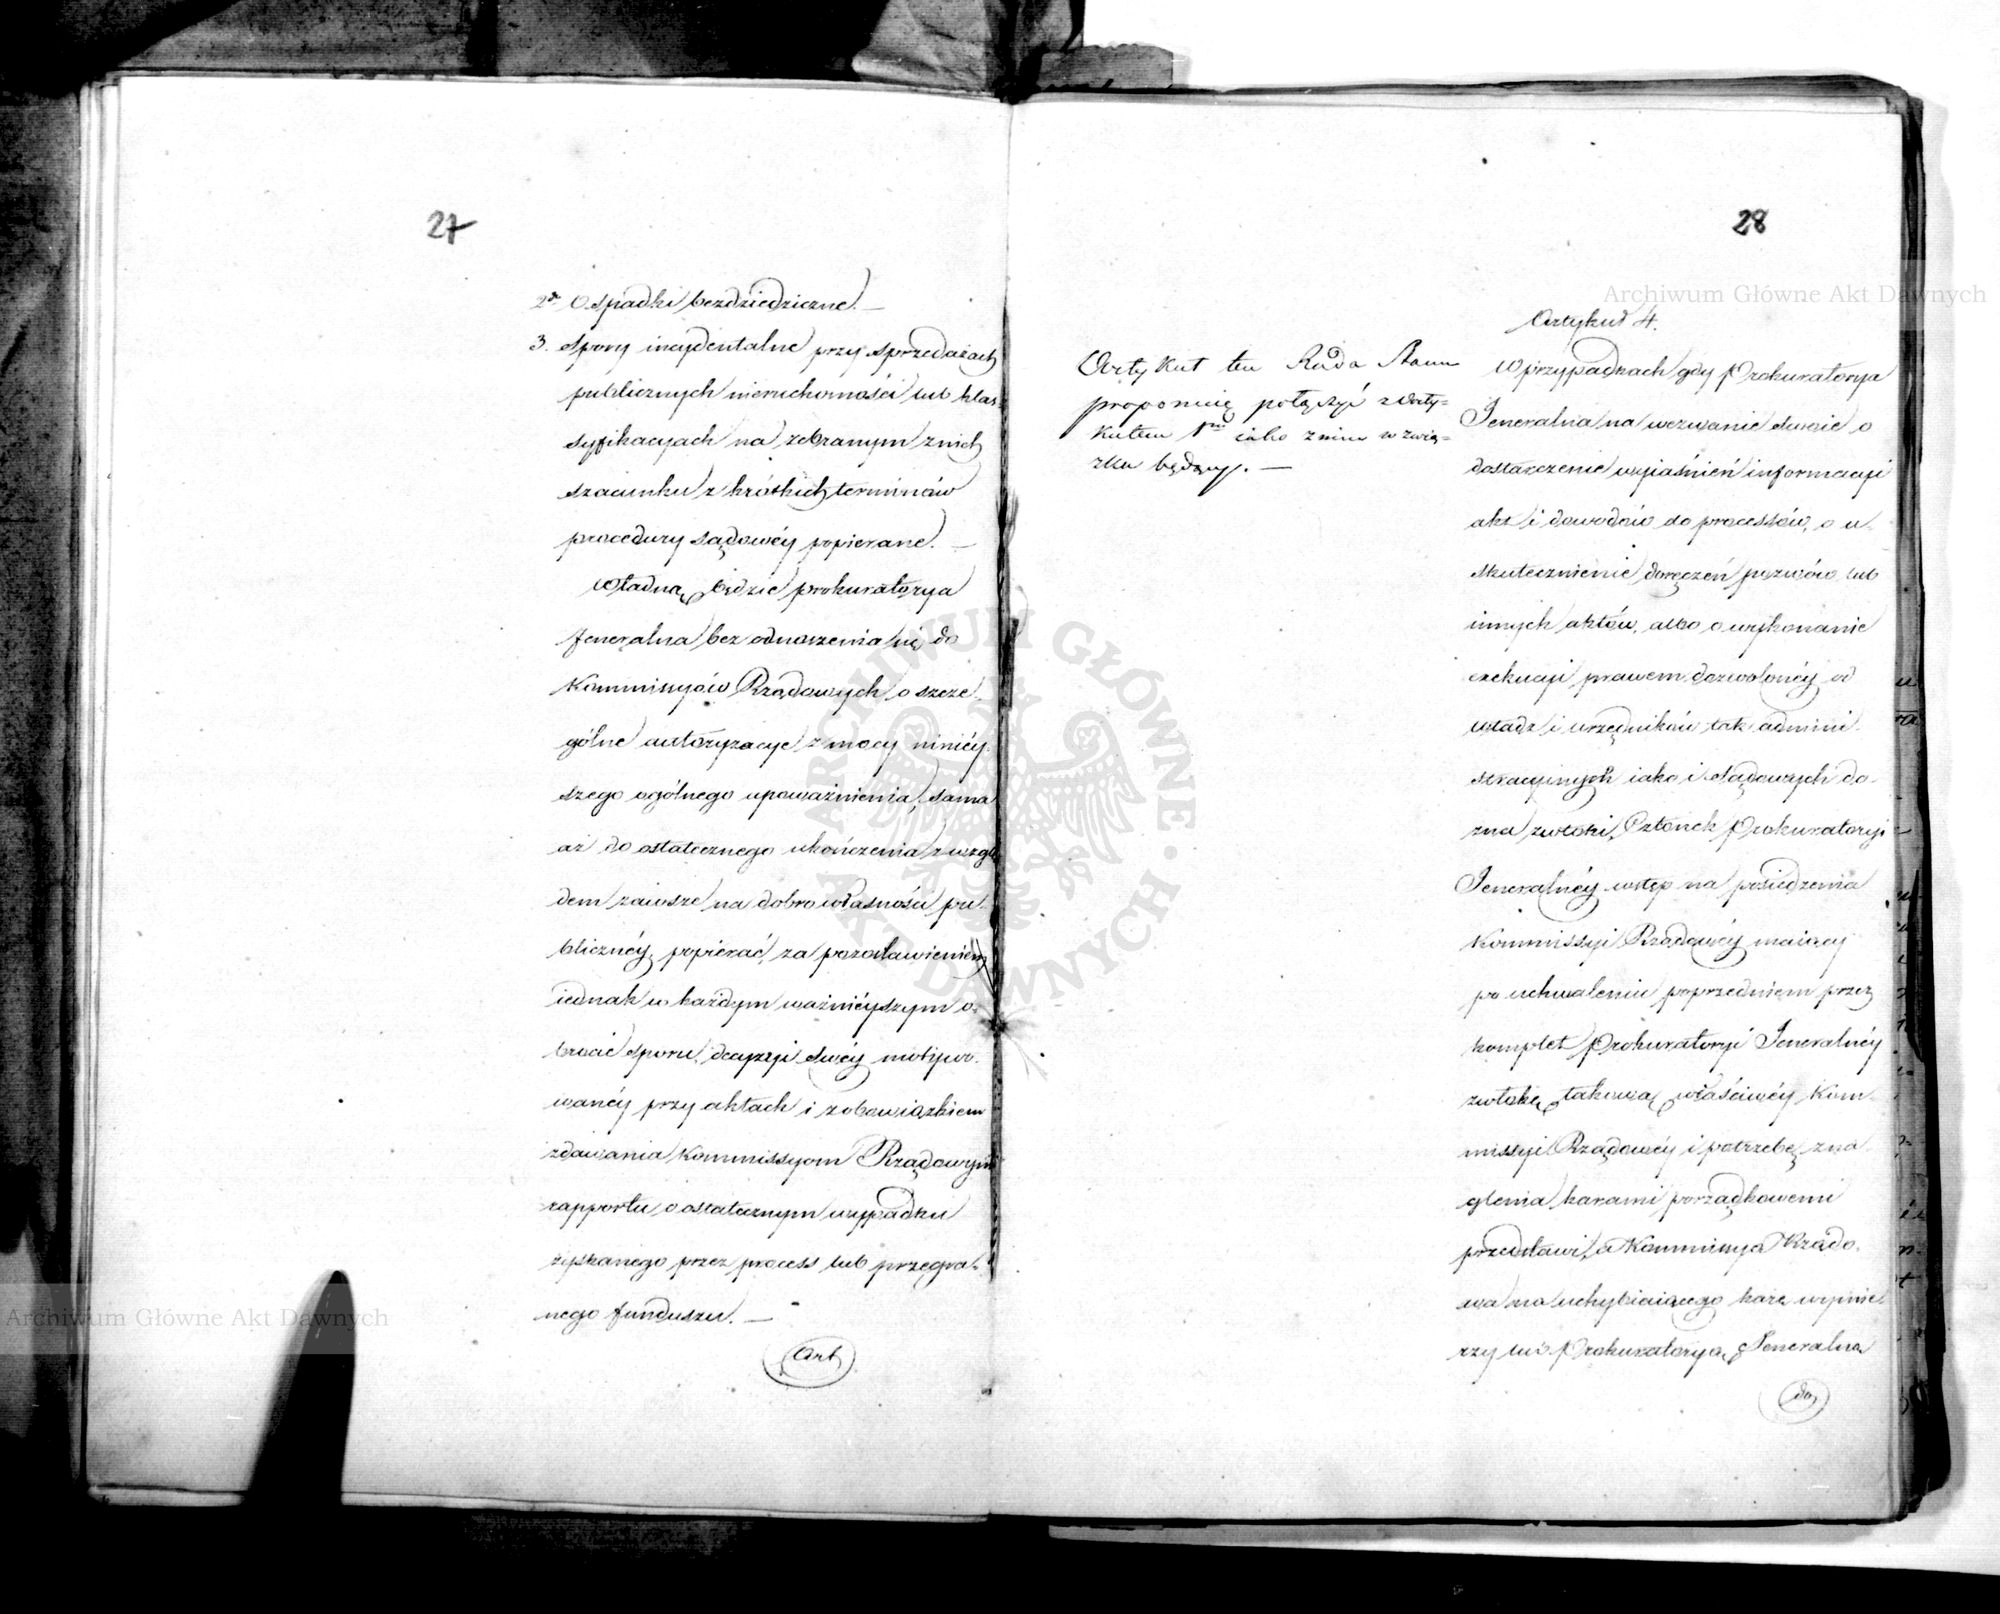 27
2re O spadki bezdziedziczne. —
3. Spory incydentalne przy sprzedażach
publicznych nieruchomości lub klas-
syfikacyach na zebranym z nich
szacunku z krótkich terminów
procedury sądowéy popierane. —
Władną będzie prokuratorya
Jeneralna bez odnoszenia się do
Kommissyów Rządowych o szcze-
gólne autoryzacye z mocy niniéy-
szego ogólnego upoważnienia, sama
aż do ostatecznego ukończenia z wzglę
dem zawsze na dobro własności pu-
bliczney, popierać, za pozostawieniem
iednak w każdym ważniéyszym o-
brocie sporu, decyzyi swéy motywo-
wanéy przy aktach i zobowiązkiem
zdawania Kommissyom Rządowym
rapportu o ostatecznym wypadku
zyskanego przez process lub przegra-
nego funduszu. —
Art
28
Artykuł ten Rada Stanu
proponuię połączyć z Arty-
kułem 1m iako z nim w zwią-
zku będący. —
Artykuł 4.
W przypadkach gdy Prokuratorya
Jeneralna na wezwanie swoie o
dostarczenie wyiaśnień informacyi
akt i dowodów do processów, o u-
skutecznienie doręczeń pozwów lub
innych aktów, albo o wykonanie
exekucyi prawem dozwolonéy od
władz i urzędników tak admini-
stracyinych iako i sądowych do-
zna zwłoki, Członek Prokuratoryi
Jeneralnéy wstęp na posiedzenia
Kommissyi Rządowéy maiący
po uchwaleniu poprzedniem przez
komplet Prokuratoryi Jeneralnéy
zwłokę takową właściwéy Kom-
missyi Rządowéy i potrzebę zna
glenia karami porządkowemi
przedstawi, a Kommissya Rządo-
wa na uchybiaiącego karę wymie-
rzy lub Prokuratoryą Jeneralna
do,
Archiwum Główne Akt Dawnych
Archiwum Główne Akt Dawnych
ARCHIWUM GŁÓWNE AKT DAWNYCH